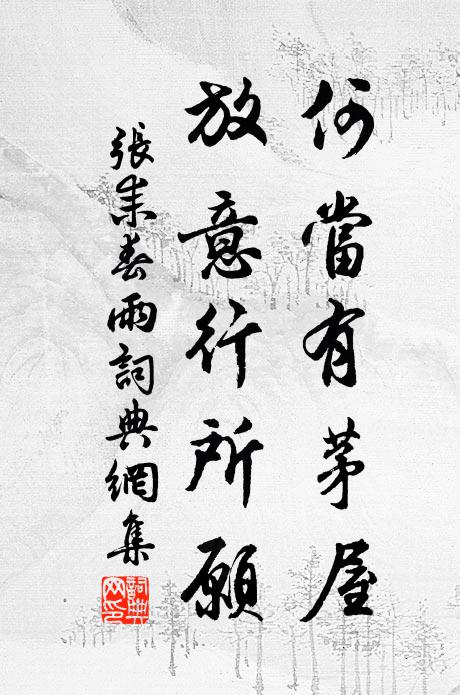 何當有茅屋
放意行所願
張耒春雨詞典網集